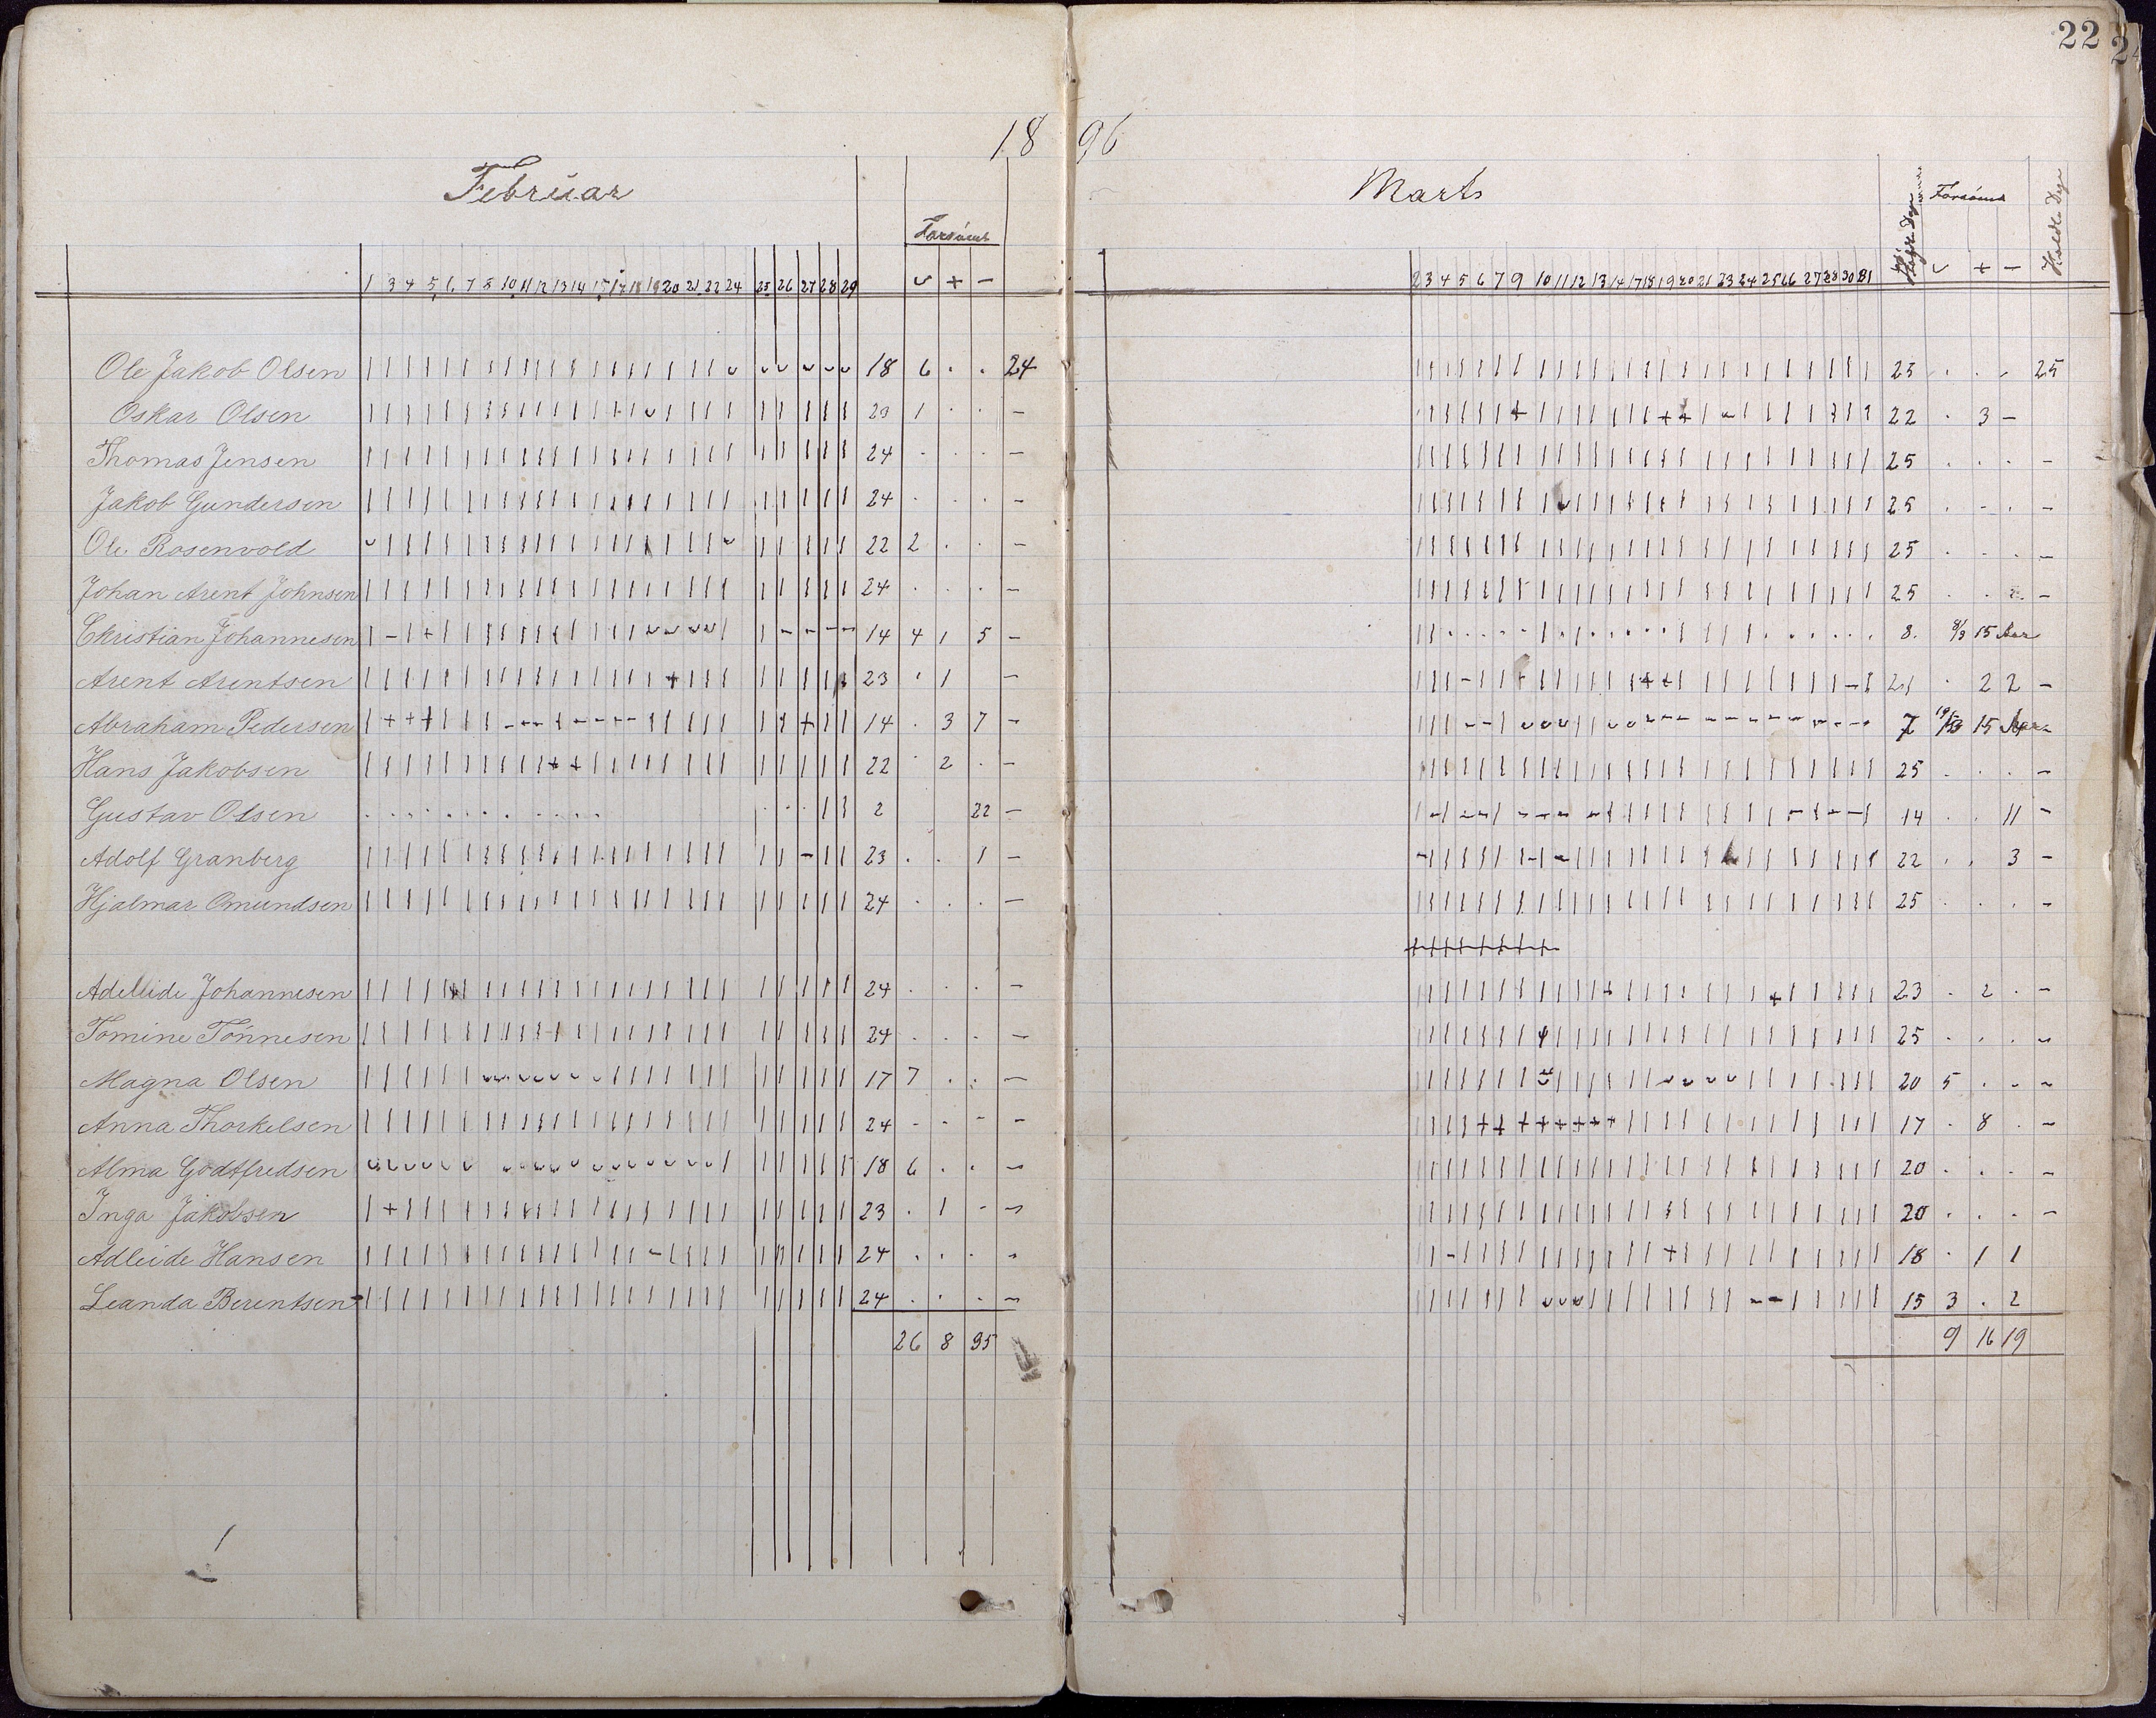 22
18 96
Februar
Marts
Forsömt
Forsömt
Holdte Dage
1 3 4 5 6 7 8 10 11 12 13 14 15 17 18 19 20 21 22 24 25 26 27 28 29 ᴗ + -
2 3 4 5 6 7 9 10 11 12 13 14 17 18 19 20 21 23 24 25 26 27 28 30 31 ᴗ + -
Ole Jakob Olsen 18 6 . . 24 23 . . . 25
Oskar Olsen 23 1 . . - 22 . 3 -
Thomas Jensen 24 . . . - 25 . . . -
Jakob Gundersen 24 . . . - 25 . - . -
Ole Rosenvold 22 2 . . - 25 . . . -
Johan Arent Johnsen 24 . . . - 25 . . . -
Christian Johannesen 14 4 1 5 - 8. 8/3 15 Aar
Arent Arentsen 23 . 1 - 21 . 2 2 -
Abraham Pedersen 14 . 3 7 - 7 15 Aar -
Hans Jakobsen 22 . 2 . - 25 . . . -
Gustav Olsen 2 22 - 14 . . 11 -
Adolf Granberg 23 . . 1 - 22 . . 3 -
Hjalmar Omundsen 24 . . . - 25 . . . -
Adelleide Johannesen 24 . . . - 23 . 2 . -
Tomine Tönnesen 24 . . . - 25 . . . -
Magna Olsen 17 7 . . - 20 5 . - -
Anna Thorkelsen 24 - . - - 17 . 8 . -
Alma Godtfredsen 18 6 . . - 20 . . . -
Inga Jakobsen 23 . 1 - - 20 . . . -
Adleide Hansen 24 . . . - 18 . 1 1
Leanda Berentsen 24 . . . - 15 3 . 2
26 8 95 9 16 19